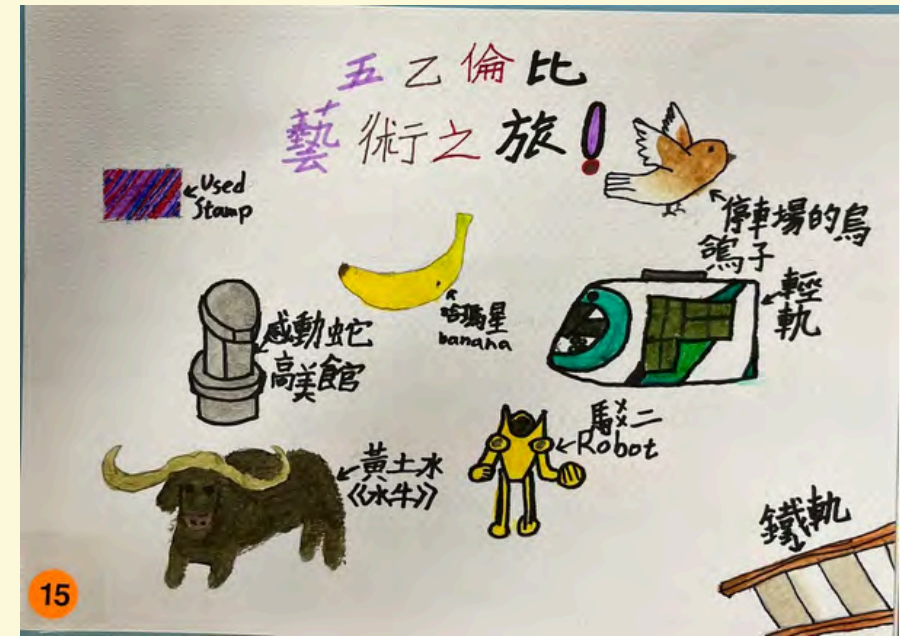 五乙倫比
藝術之旅!
Used
Stamp
停車場的鳥
鴿子
哈瑪星
banana
輕
軌
感動蛇
高美館
駁二
Robot
黃土水
《水牛》
鐵軌
15